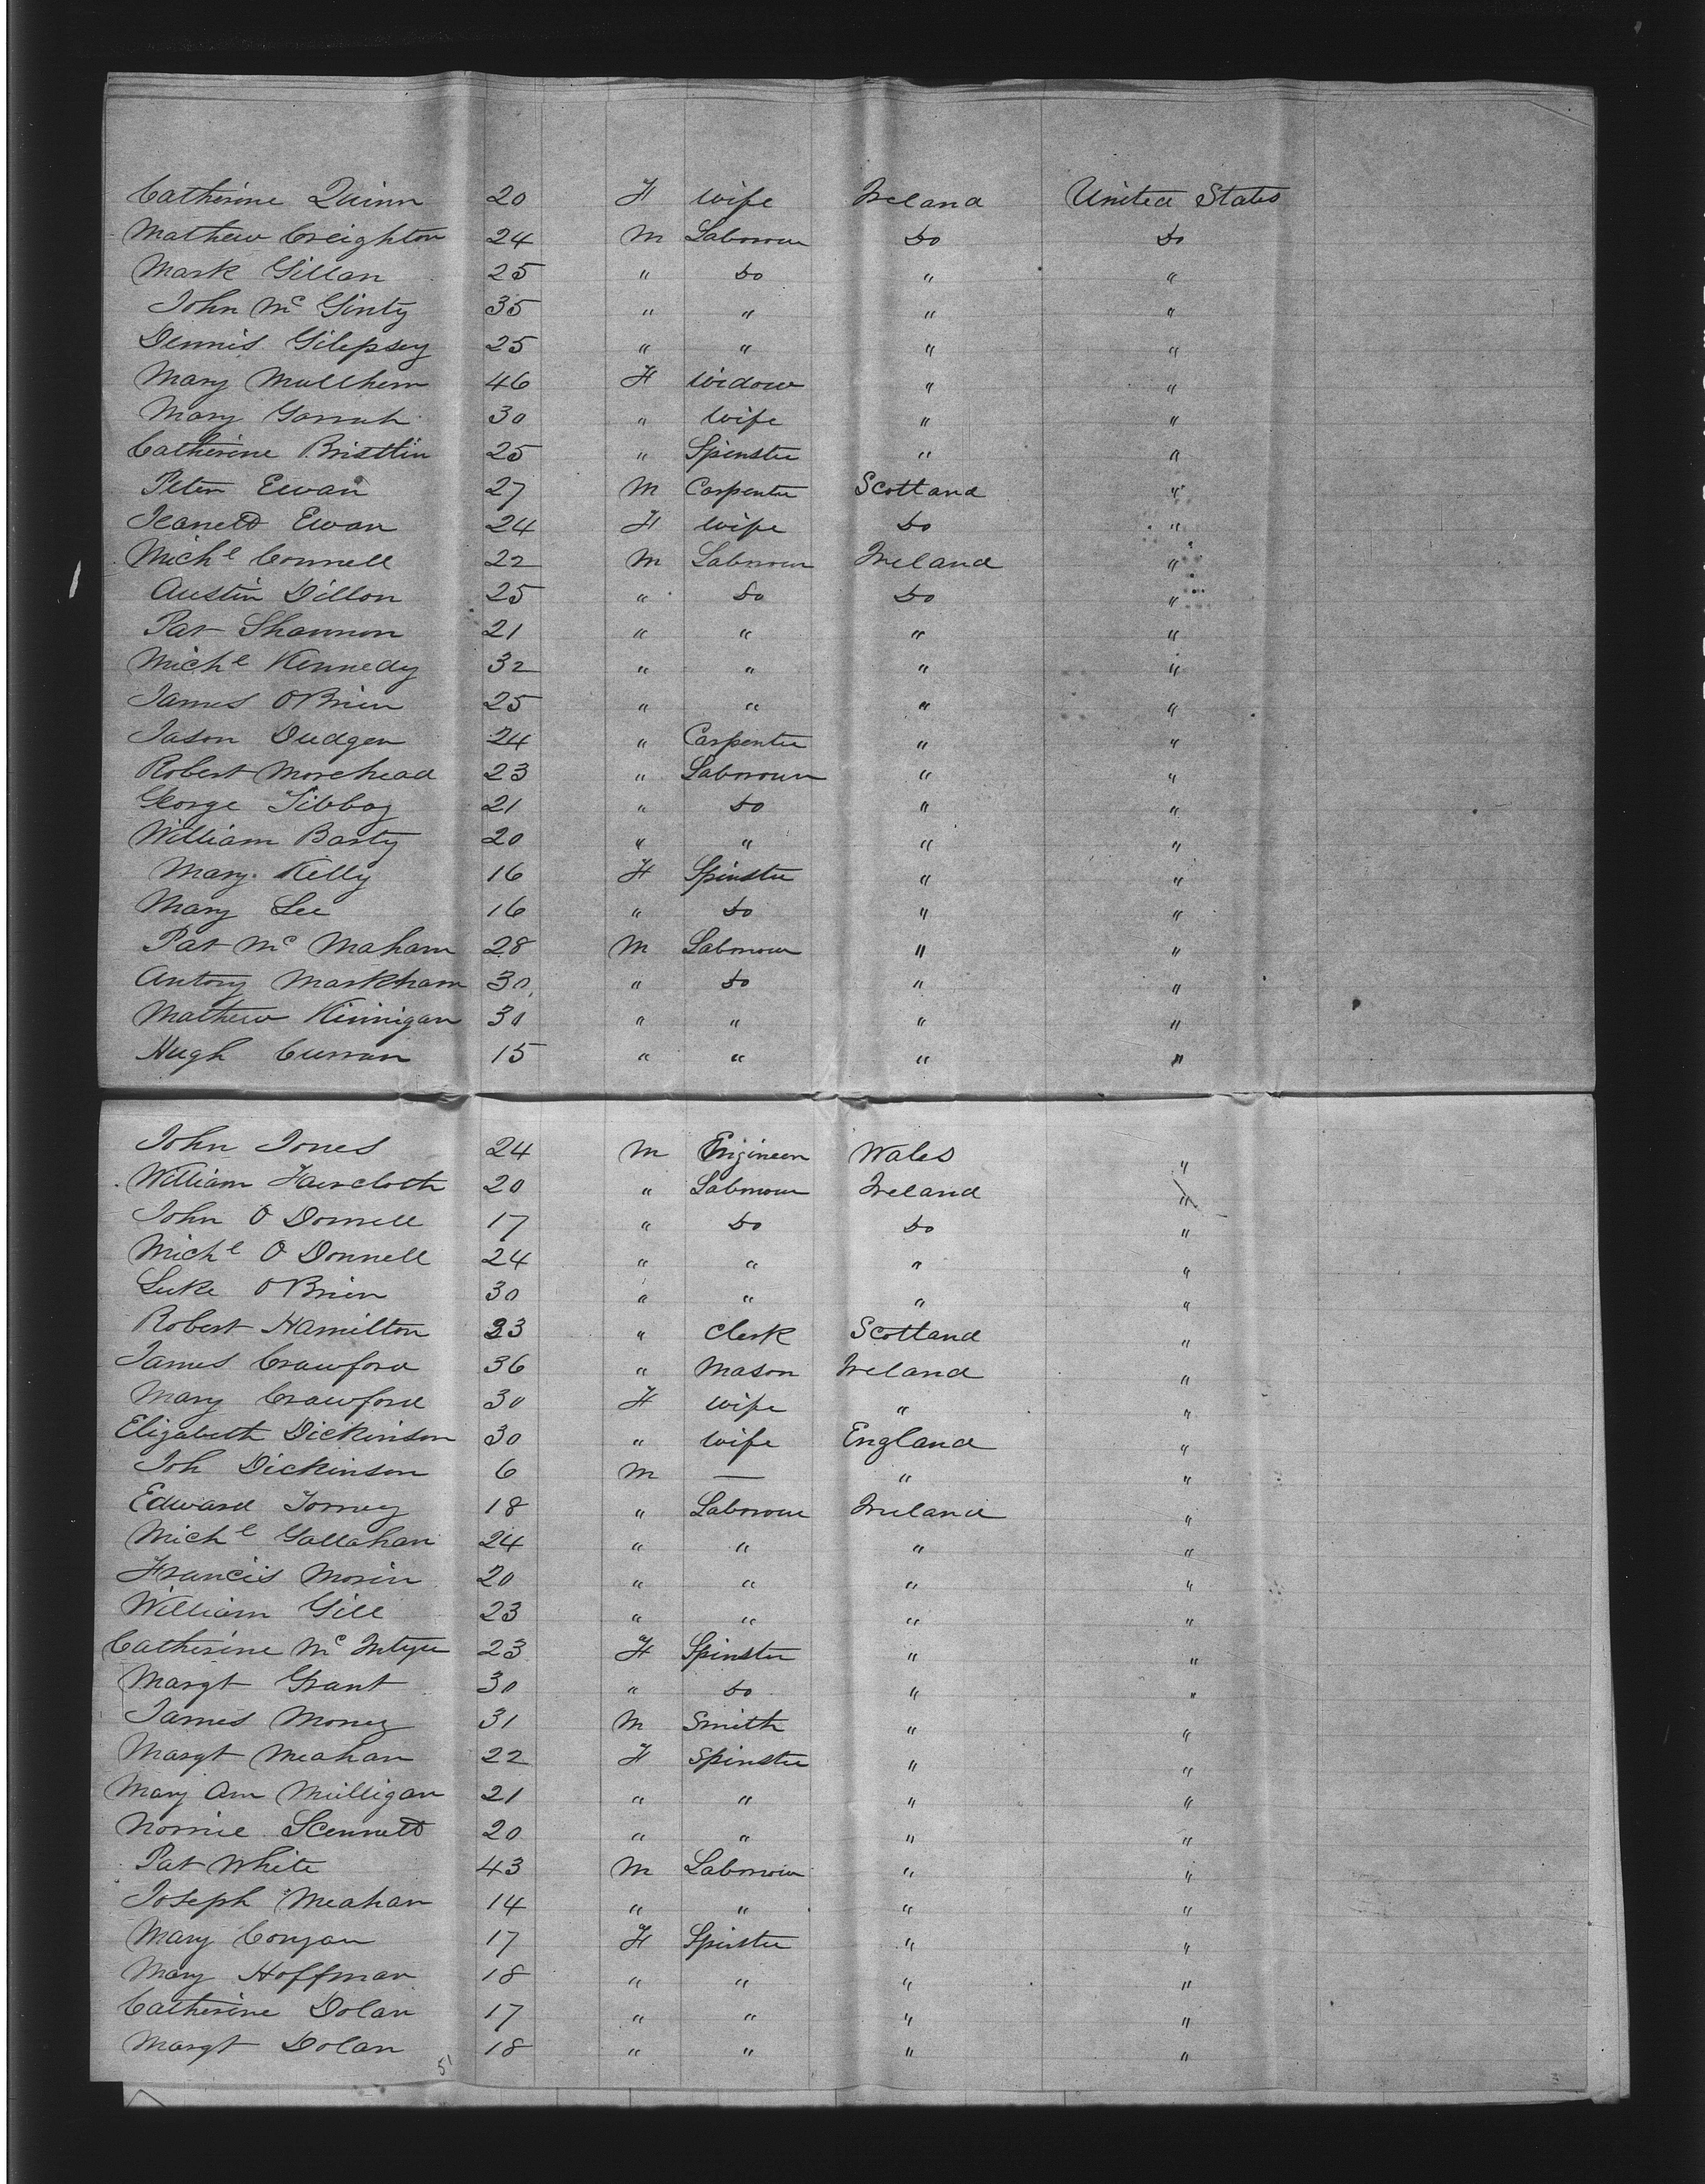 Catherine Quinn 20 F wife Ireland United States
Mathew Creighton 24 M Labourer Do Do
Mark Gillan 25 " Do " "
John Mc Ginty 35 " " " "
Dennis Gilepsey 25 " " " "
Mary Mullhern 46 F widow " "
Mary 30 " wife " "
Catherine Bristlin 25 " Spinster " "
Peter Ewan 27 M Carpenter Scotland "
Ewan 24 F wife Do "
Michl Connell 22 M Labourer Ireland "
Austin Dillon 25 " Do Do "
Pat Shannon 21 " " " "
Michl Kennedy 32 " " " "
James OBrien 25 " " " "
Jason Dudgen 24 " Carpenter " "
Robert Morehead 23 " Labourer " "
George 21 " Do " "
William Barty 20 " " " "
Mary Kelly 16 F Spinster " "
Mary Lee 16 " Do " "
Pat Mc Maham 28 M Labourer " "
Antony Markham 30 " Do " "
Mathew Kinnigan 30 " " " "
Hugh Curran 15 " " " "
John Jones 24 M Engineer Wales "
William Faircloth 20 " Labourer Ireland "
John O Donnell 17 " Do Do "
Michl O Donnell 24 " " " "
Luke OBrien 30 " " " "
Robert Hamilton 23 " Clerk Scotland "
James Crawford 36 " Mason Ireland "
Mary Crawford 30 F wife " "
Elizabeth Dickinson 30 " wife England "
Joh Dickinson 6 M — " "
Edward Torney 18 " Labourer Ireland "
Michl Gallahan 24 " " " "
Francis Morin 20 " " " "
William Gill 23 " " " "
Catherine Mc Intyre 23 F Spinster " "
Margt Grant 30 " Do " "
James Money 31 M Smith " "
Margt Meahan 22 F Spinster " "
Mary Ann Milligan 21 " " " "
Norrie Scennett 20 " " " "
Pat White 43 M Labourer " "
Joseph Meahan 14 " " " "
Mary Conyan 17 F Spinster " "
Mary Hoffman 18 " " " "
Catherine Dolan 17 " " " "
Margt Dolan 18 " " " "
51